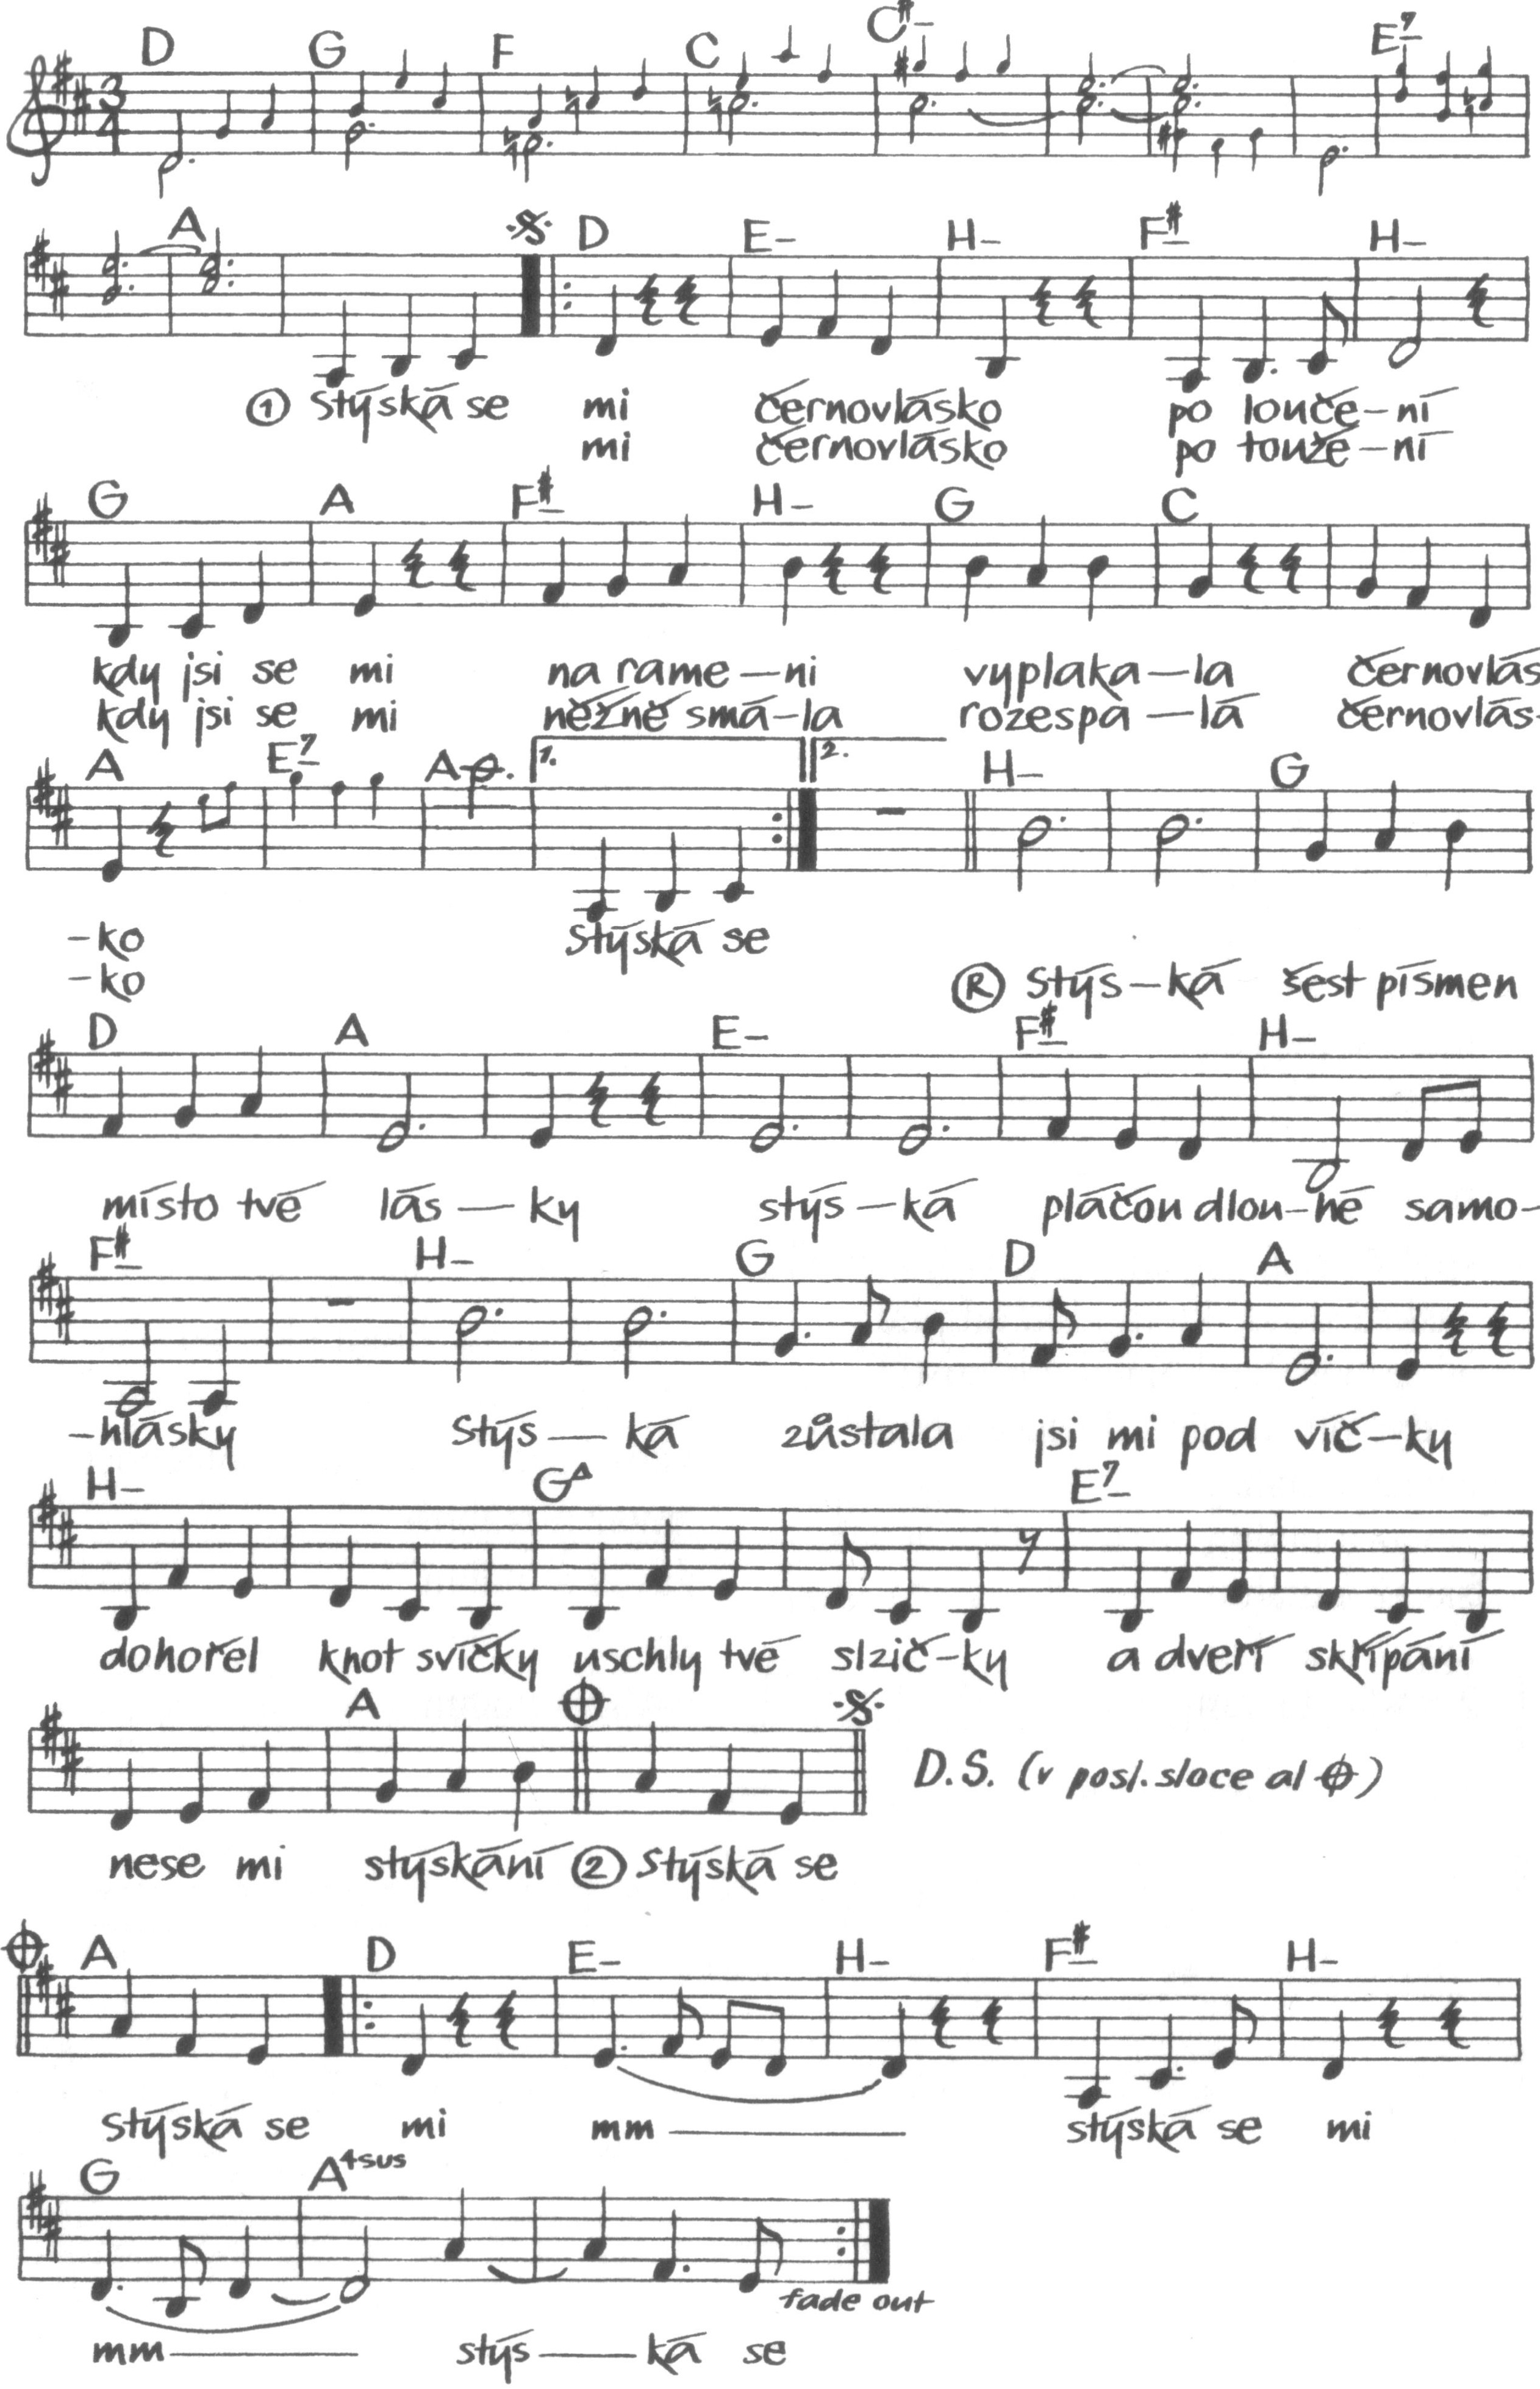 D G F C C#– E7–
3/4
A D E– H– F#– H–
① Stýská se mi černovlásko po louče–ní
mi černovlásko po touže–ní
G A F#– H– G C
kdy jsi se mi na rame–ni vyplaka–la černovlás
kdy jsi se mi něžně smá–la rozespa–lá černovlás-
A E7– A 1. 2. H– G
-ko stýská se
-ko Ⓡ Stýs–ká šest písmen
D A E– F#– H–
místo tvé lás–ky stýs–ká pláčou dlou–hé samo-
F#– H– G D A
-hlásky Stýs–ká zůstala jsi mi pod víč–ky
H– GA E7–
dohořel knot svíčky uschly tvé slzič–ky a dveří skřípání
A
D.S. (v posl. sloce al 𝄌)
nese mi stýskání ② Stýská se
A D E– H– F#– H–
Stýská se mi mm stýská se mi
G A4sus
fade out
mm stýs–ká se